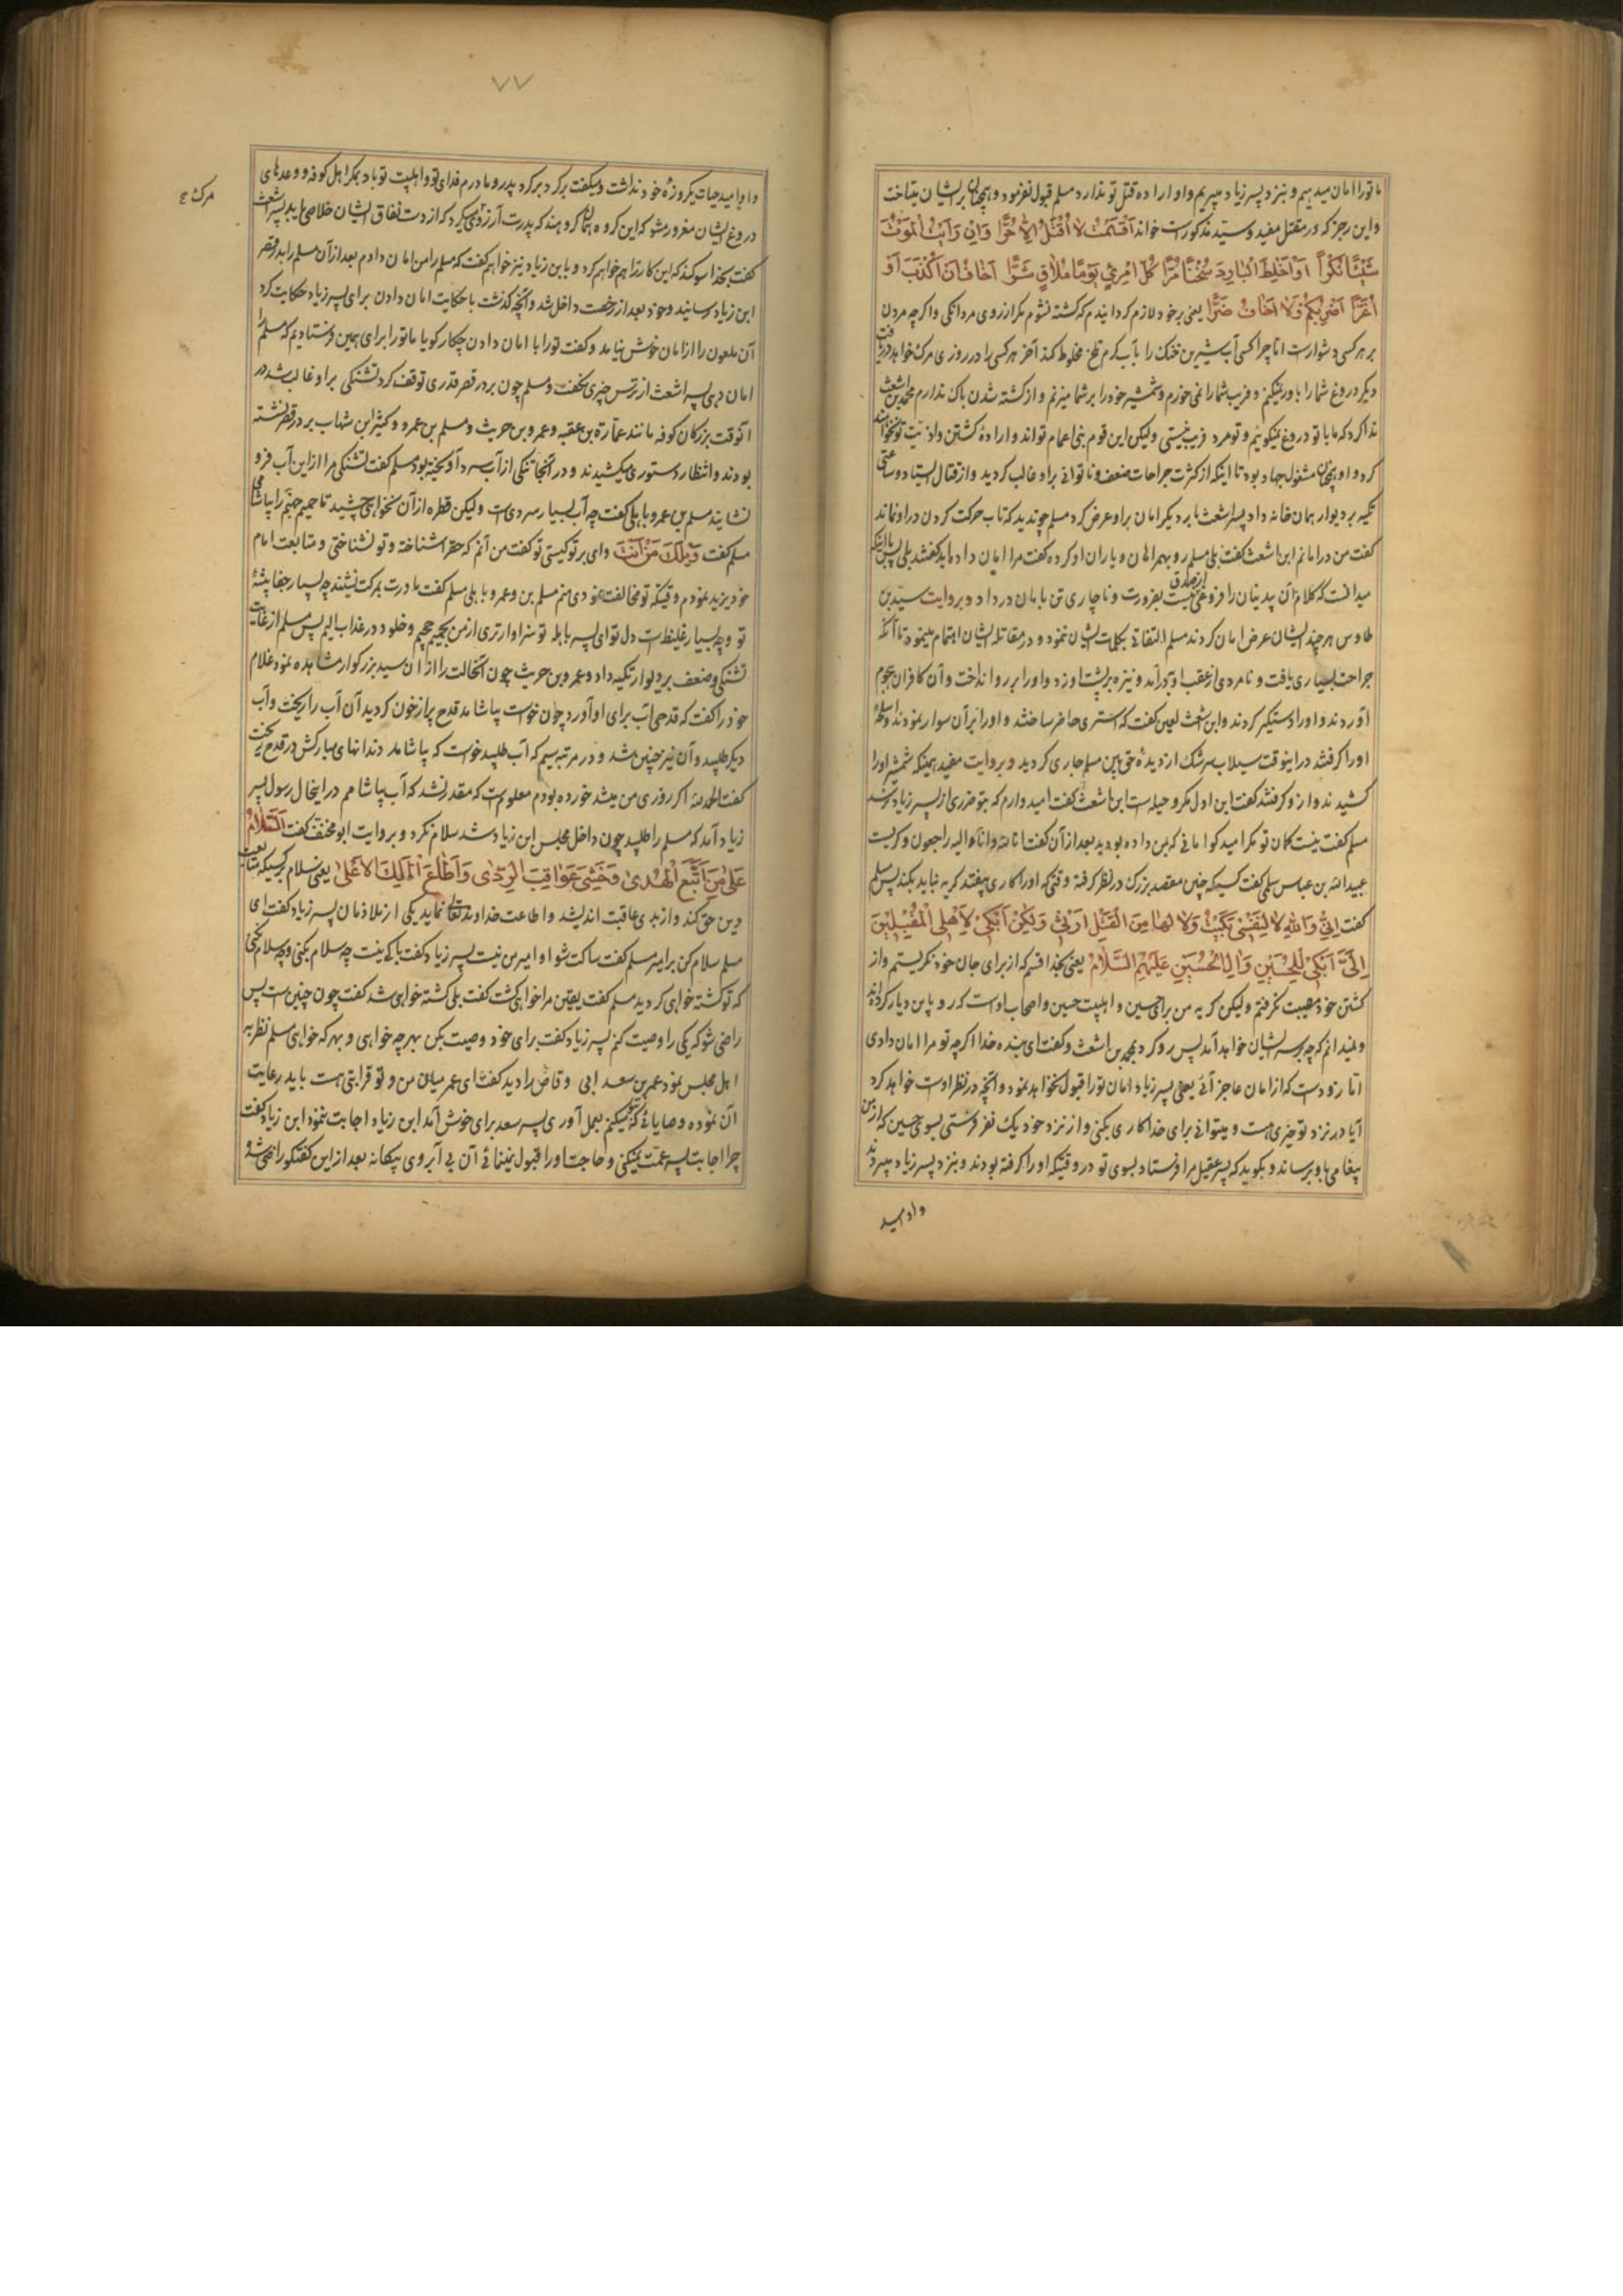 ما تورا امان میدهیم و بنزد پسر زیاد میبریم و او اراده قتل تو ندارد مسلم قبول نفرمود و همچنان بر ایشان میتاخت
و این رجز که در مقتل مفید و سید مذکورست خواند اَقْسَمْتُ لا اُقْتَلُ اِلاّ حُرًّا وَاِنْ رَاَیْتُ الْمَوْتَ
شَیْئًا نُکْرًا اَوْ اَخْلِطَ الْبارِدَ سُخْنًا مُرًّا کُلُّ امْرِئٍ یَوْمًا مُلاقٍ شَرًّا اَخافُ اَنْ اُکْذَبَ اَوْ
اُغَرَّا اَضْرِبُکُمْ وَلا اَخافُ ضَرًّا یعنی بر خود لازم گردانیدم که کشته نشوم مگر از روی مردانگی و اگرچه مردن
بر هر کسی دشوارست اما چرا کسی آب شیرین خنک را بآب گرم تلخ مخلوط کند آخر هر کسی را در روزی مرگ خواهد دریافت
دیگر دروغ شما را باور نمیکنم و فریب شما را نمی خورم و شمشیر خود را بر شما میزنم و از کشته شدن باک ندارم محمد بن اشعث
ندا کرد که ما با تو دروغ نمیگوئیم و تو مرد فریب نیستی ولیکن این قوم بنی اعمام تواند و اراده کشتن و اذیت تو نخواهند
کرد و او همچنان مشغول جهاد بود تا اینکه از کثرت جراحات ضعف و ناتوانی بر او غالب گردید و از قتال ایستاد و ساعتی
تکیه بر دیوار همان خانه داد پسر اشعث بار دیگر امان بر او عرض کرد مسلم چون دید که تاب حرکت کردن در او نماند
گفت من در امانم ابن اشعث گفت بلی مسلم رو بهمراهان و یاران او کرده گفت مرا امان داده‌اید گفتند بلی پس با آنکه
میدانست که کلام آن بیدینان را فروغی از صدق نیست بضرورت و ناچاری تن بامان در داد و بروایت سید بن
طاوس هر چند ایشان عرض امان کردند مسلم التفاتی بکلمات ایشان ننمود و در مقاتله ایشان اهتمام مینمود تا آنکه
جراحت بسیاری یافت و نامردی از عقب او درآمد و نیزه بر پشت او زد و او را بر رو انداخت و آن کافران هجوم
آوردند و او را دستگیر کردند و ابن اشعث لعین گفت که استری حاضر ساختند و او را بر آن سوار نمودند و اسلحه
او را گرفتند در اینوقت سیلاب سرشک از دیدهٔ حق بین مسلم جاری گردید و بروایت مفید همینکه شمشیر او را
کشیدند و از او گرفتند گفت این اول مکر و حیله است ابن اشعث گفت امیدوارم که بتو ضرری از پسر زیاد نرسد
مسلم گفت نیست کمان تو مگر امید کو امانی که بمن داده بودید بعد از آن گفت انا لله و انا الیه راجعون و گریست
عبید الله بن عباس سلمی گفت کسیکه چنین مقصد بزرگ در نظر گرفته وقتیکه او را کاری بیفتد گریه نباید بکند پس مسلم
گفت اِنّی وَاللهِ لا لِنَفْسی بَکَیْتُ وَلا لَها مِنَ الْقَتْلِ اَرْثی وَلکِنْ اَبْکی لِاَهْلِی الْمُقْبِلینَ
اِلَیَّ اَبْکی لِلْحُسَیْنِ وَالِ الْحُسَیْنِ عَلَیْهِمُ السَّلامُ یعنی بخدا قسم که از برای جان خود نگریستم و از
کشتن خود مصیبت نگرفتم ولیکن گریه من برای حسین و اهلبیت حسین و اصحاب اوست که رو باین دیار کرده‌اند
و نمیدانم که چه بر سر ایشان خواهد آمد پس رو کرد بمحمد بن اشعث و گفت ای بنده خدا اگرچه تو مرا امان دادی
اما زودست که از امان عاجز آئی یعنی پسر زیاد امان تو را قبول نخواهد نمود و آنچه در نظر اوست خواهد کرد
آیا در نزد تو چیزی هست و میتوانی برای خدا کاری بکنی و از نزد خود یک نفر فرستی بسوی حسین که از من
پیغامی باو برساند و بگوید که پسر عقیل مرا فرستاد بسوی تو در وقتیکه او را گرفته بودند و بنزد پسر زیاد میبردند
و او امید
۷۷
و او امید حیات یکروزهٔ خود نداشت و میگفت برگرد برگرد پدر و مادرم فدای تو و اهلبیت تو باد بمکر اهل کوفه و وعدهای
دروغ ایشان مغرور مشو که این گروه همان گروهند که پدرت آرزوی مرگ میکرد که از دست نفاق ایشان خلاصی یابد پسر اشعث
گفت بخدا سوگند که این کار را هم خواهم کرد و بابن زیاد نیز خواهم گفت که مسلم را من امان دادم بعد از آن مسلم را بدر قصر
ابن زیاد رسانید و خود بعد از رخصت داخل شد و آنچه گذشت با حکایت امان دادن برای پسر زیاد حکایت کرد
آن ملعون را از امان خوش نیامد و گفت تو را با امان دادن چکار گویا ما تو را برای همین فرستادیم که مسلم را
امان دهی پسر اشعث از ترس چیزی نگفت و مسلم چون بر در قصر قدری توقف کرد تشنگی بر او غالب شد در
آنوقت بزرگان کوفه مانند عمارة بن عقبه و عمرو بن حریث و مسلم بن عمرو و کثیر ابن شهاب بر در قصر نشسته
بودند و انتظار دستوری میکشیدند و در آنجا تنگی از آب سرد آویخته بود مسلم گفت تشنگی مرا از این آب فرو
نشانید مسلم بن عمرو باهلی گفت چه آب بسیار سردی است ولیکن قطره از آن نخواهی چشید تا حمیم جهنم را بیاشامی
مسلم گفت وَیْلَکَ مَنْ اَنْتَ وای بر تو کیستی تو گفت من آنم که حق را شناخته و تو نشناختی و متابعت امام
خود یزید نمودم وقتیکه تو مخالفت نمودی منم مسلم بن عمرو باهلی مسلم گفت مادرت بمرگت نشیند چه بسیار جفا پیشهٔ
تو و چه بسیار غلیظ است دل تو ای پسر باهله تو سزاوارتری از من بحمیم جحیم و خلود در عذاب الیم پس مسلم از غایت
تشنگی و ضعف بر دیوار تکیه داد و عمرو بن حریث چون آنحالت را از آن سید بزرگوار مشاهده نمود غلام
خود را گفت که قدحی آب برای او آورد چون خواست بیاشامد قدح پر از خون گردید آن آب را ریخت و آب
دیگر طلبید و آن نیز چنین شد و در مرتبه سیم که آب طلبید خواست که بیاشامد دندانهای مبارکش در قدح ریخت
گفت الحمد لله اگر روزی من میشد خورده بودم معلوم است که مقدر نشد که آب بیاشامم در اینحال رسول پسر
زیاد آمد که مسلم را طلبید چون داخل مجلس ابن زیاد شد سلام نکرد و بروایت ابو مخنف گفت اَلسَّلامُ
عَلی مَنِ اتَّبَعَ الْهُدی وَخَشِیَ عَواقِبَ الرَّدی وَاَطاعَ الْمَلِکَ الْاَعْلی یعنی سلام بر کسیکه متابعت
دین حق کند و از بدی عاقبت اندیشد و اطاعت خداوند تعالی نماید یکی از ملازمان پسر زیاد گفت ای
مسلم سلام کن بر امیر مسلم گفت ساکت شو او امیر من نیست پسر زیاد گفت باکی نیست چه سلام بکنی و چه سلام نکنی
که تو کشته خواهی گردید مسلم گفت یقین مرا خواهی کشت گفت بلی کشته خواهی شد گفت چون چنین است پس
راضی شو که یکی را وصیت کنم پسر زیاد گفت برای خود وصیت بکن بهرچه خواهی و بهر که خواهی مسلم نظر به
اهل مجلس نمود عمر بن سعد ابی وقاص را دید گفت ای عمر میان من و تو قرابتی هست باید رعایت
آن نموده وصایائی که بتو میکنم بعمل آوری پسر سعد برای خوش آمد ابن زیاد اجابت ننمود ابن زیاد گفت
چرا اجابت پسر عمت نمیکنی و حاجت او را قبول نمینمائی آن بی آبروی بیگانه بعد از این گفتگو راضی شد و